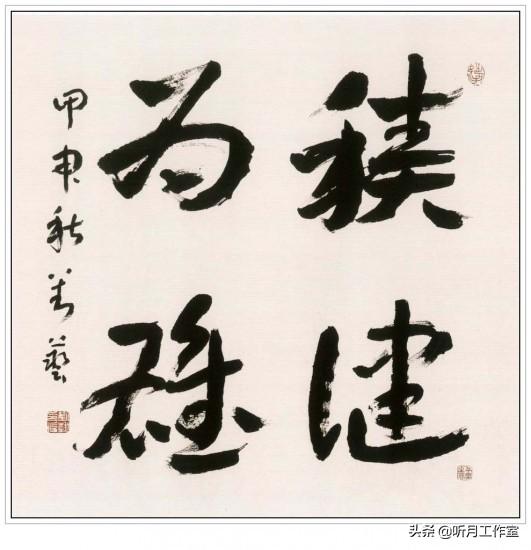 積健
为雄
甲申秋劉藝
头条 @听月工作室